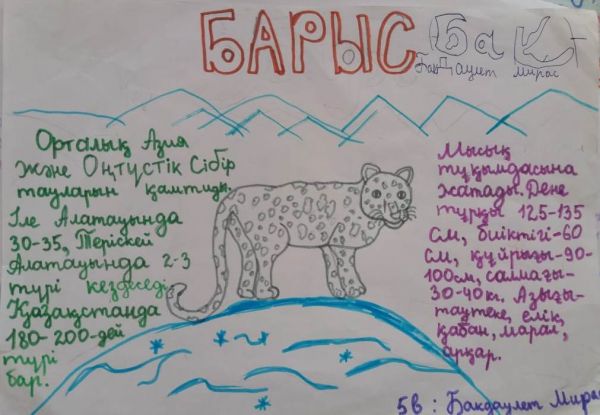 БАРЫС
Бақ
Бақдаулет Мирас
Орталық Азия
және Оңтүстік Сібір
тауларын қамтиды.
Іле Алатауында
30-35, Теріскей
Алатауында 2-3
түрі кездеседі.
Қазақстанда
180-200-дей
түрі
бар.
Мысық
тұқымдасына
жатады. Дене
тұрқы 125-135
см, биіктігі-60
см, құйрығы-90-
100см, салмағы-
30-40кг. Азығы-
таутеке, елік,
қабан, марал,
арқар.
5в : Бақдаулет Мирас